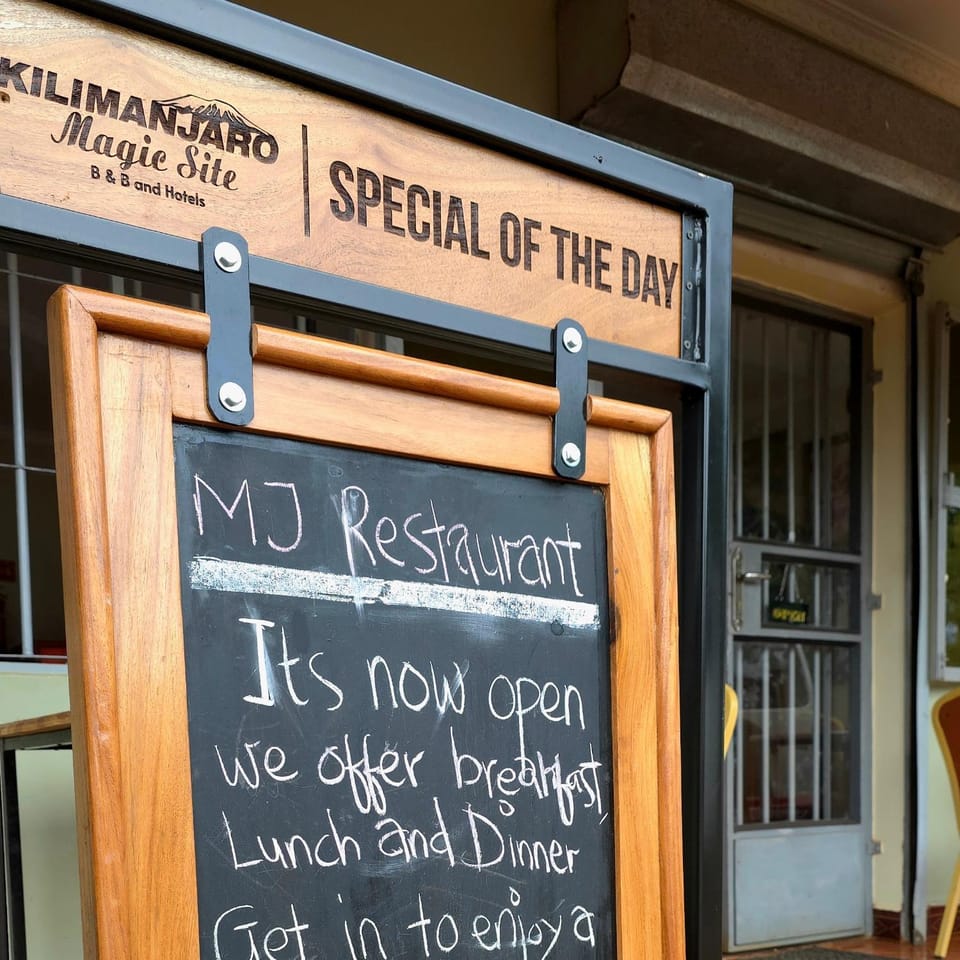 KILIMANJARO
Magic Site
B & B and Hotels
SPECIAL OF THE DAY
MJ Restaurant
Its now open
we offer breakfast,
Lunch and Dinner
Get in to enjoy a